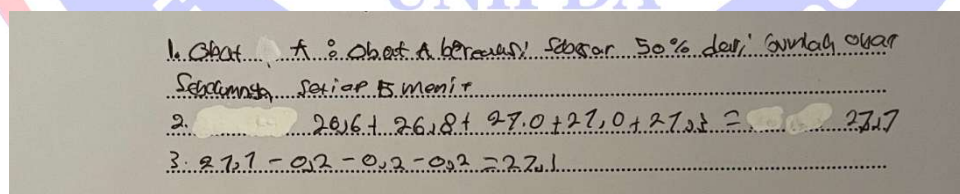 UNIPDA
1. Obat A : Obat A bereaksi sebesar 50% dari jumlah obat
Sebelumnya setiap 5 menit
2. 26,6 + 26,8 + 27.0 + 27,0 + 27,3 = 27,7
3. 27,7 - 0,2 - 0,2 - 0,2 = 27,1